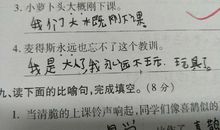 3. 小萝卜头大概刚下课。
我们了大水
刚下课
4. 麦得斯永远也忘不了这个教训。
我是大人了,我永远不
玩具了
九、读下面的比喻句,完成填空。(8分)
1. 当清脆的上课铃声响起,同学们像喜鹊似的